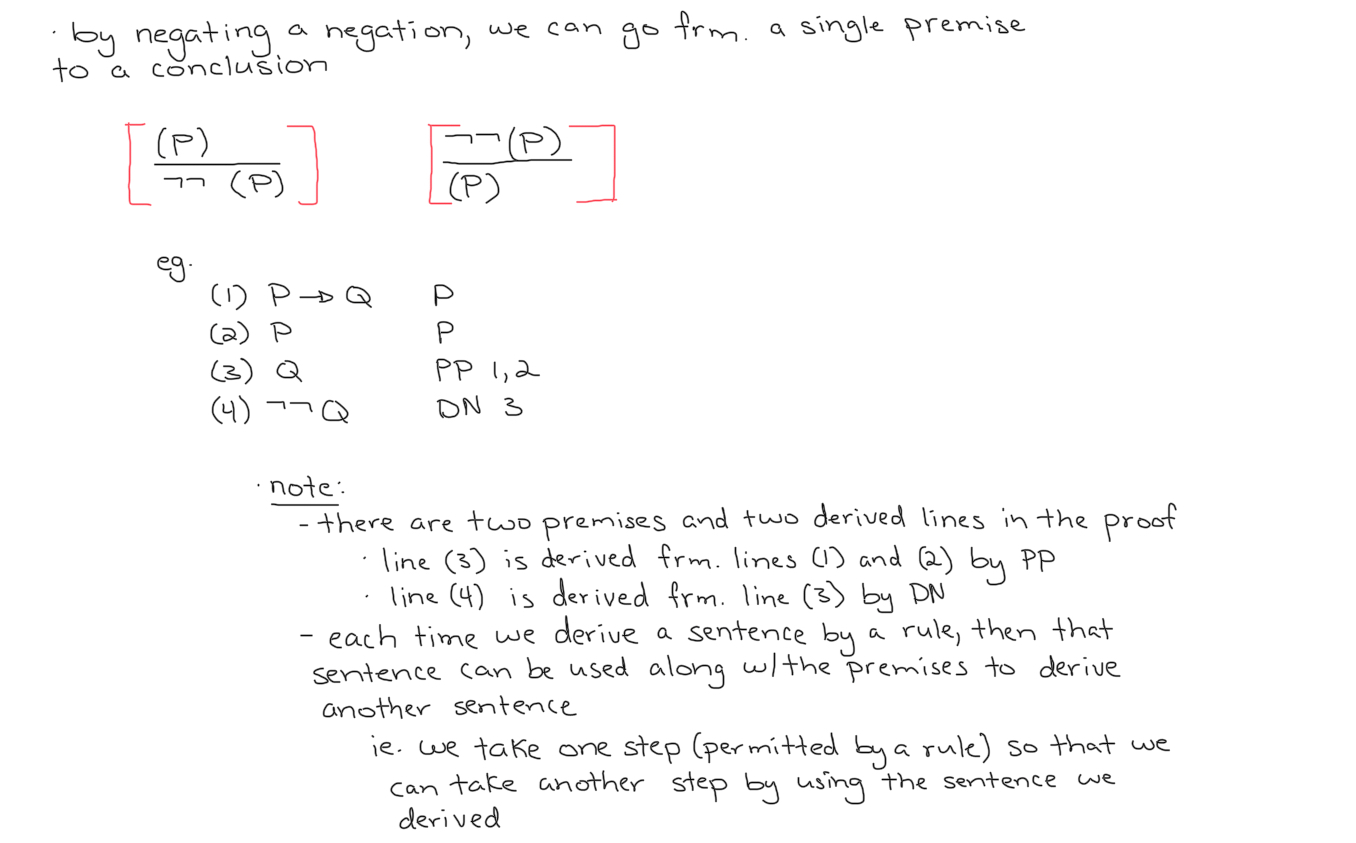 · by negating a negation, we can go frm. a single premise
to a conclusion
(P) ¬¬(P)
¬¬ (P) (P)
eg.
(1) P→Q P
(2) P P
(3) Q PP 1,2
(4) ¬¬Q DN 3
· note:
- there are two premises and two derived lines in the proof
· line (3) is derived frm. lines (1) and (2) by PP
· line (4) is derived frm. line (3) by DN
- each time we derive a sentence by a rule, then that
sentence can be used along w/the premises to derive
another sentence
ie. we take one step (permitted by a rule) so that we
can take another step by using the sentence we
derived